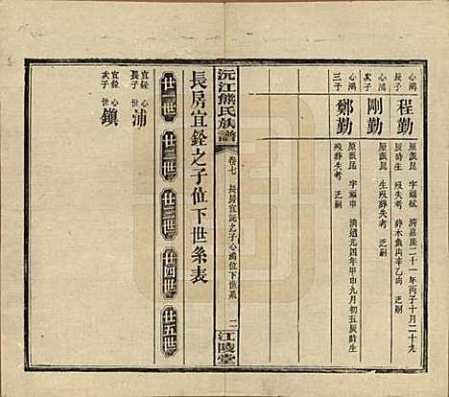 心鴻
長子
程勤
原派昆 字福斌 清嘉慶二十一年丙子十月二十九
辰時生 歿葬木魚山辛乙向 乏嗣
心鴻
次子
剛勤
原派昆 生歿葬失考 乏嗣
心鴻
三子
鄭勤
原派昆 字福申 清道光四年甲申九月初五辰時生
歿葬失考 乏嗣
沅江熊氏族譜
卷七 長房宜銓之子心鴻位下世系 二
江陵堂
長房宜銓之子位下世系表
廿一世 廿二世 廿三世 廿四世 廿五世
宜銓 心
長子 世 浦
宜銓 心
次子 世 鎮